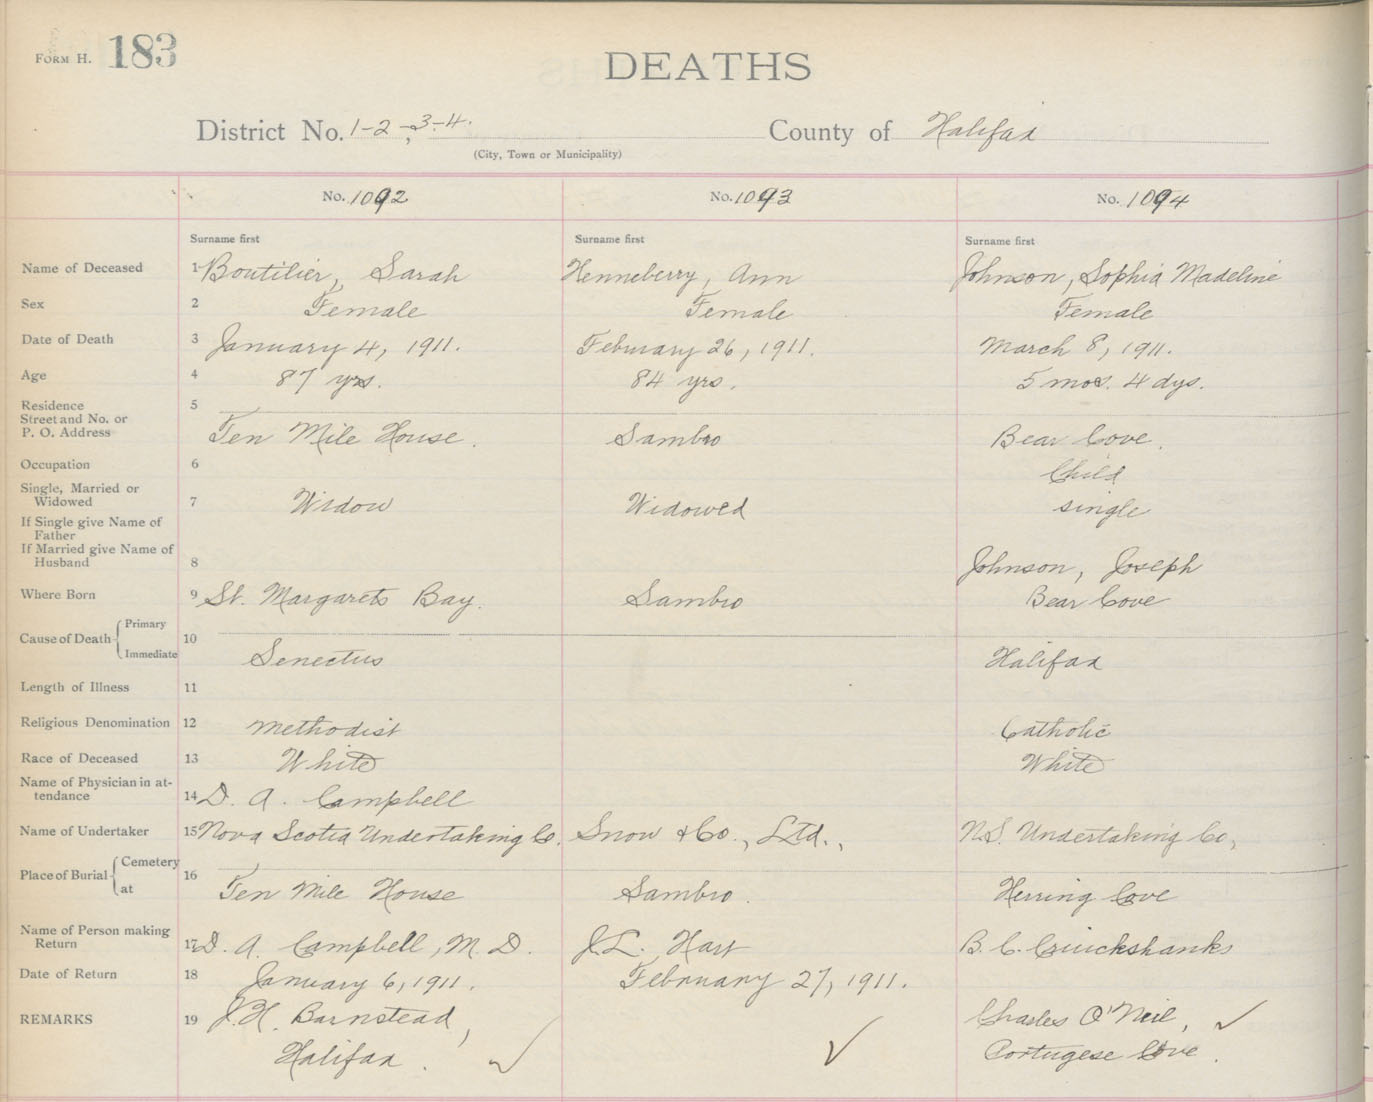 FORM H. 183
DEATHS
District No. 1-2-,3-4. County of Halifax
(City, Town or Municipality)
No. 1092 No. 1093 No. 1094
Surname first Surname first Surname first
Name of Deceased 1 Boutilier, Sarah Henneberry, Ann Johnson, Sophia Madeline
Sex 2 Female Female Female
Date of Death 3 January 4, 1911. February 26, 1911. March 8, 1911.
Age 4 87 yrs. 84 yrs. 5 mos. 4 dys.
Residence 5
Street and No. or
P. O. Address Ten Mile House. Sambro Bear Cove.
Occupation 6 Child
Single, Married or
Widowed 7 Widow Widowed single
If Single give Name of
Father
If Married give Name of
Husband 8 Johnson, Joseph
Where Born 9 St. Margarets Bay. Sambro Bear Cove
Cause of Death { Primary 10
Immediate Senectus Halifax
Length of Illness 11
Religious Denomination 12 Methodist Catholic
Race of Deceased 13 White White
Name of Physician in at-
tendance 14 D. A. Campbell
Name of Undertaker 15 Nova Scotia Undertaking Co. Snow & Co., Ltd., N.S. Undertaking Co,
Place of Burial { Cemetery 16
at Ten Mile House Sambro. Herring Cove
Name of Person making
Return 17 D. A. Campbell, M. D. J.L. Hart B. C. Cruickshanks
Date of Return 18 January 6, 1911. February 27, 1911.
REMARKS 19 J.H. Barnstead, Charles O'Neil, ✓
Halifax. ✓ ✓ Portugese Cove.